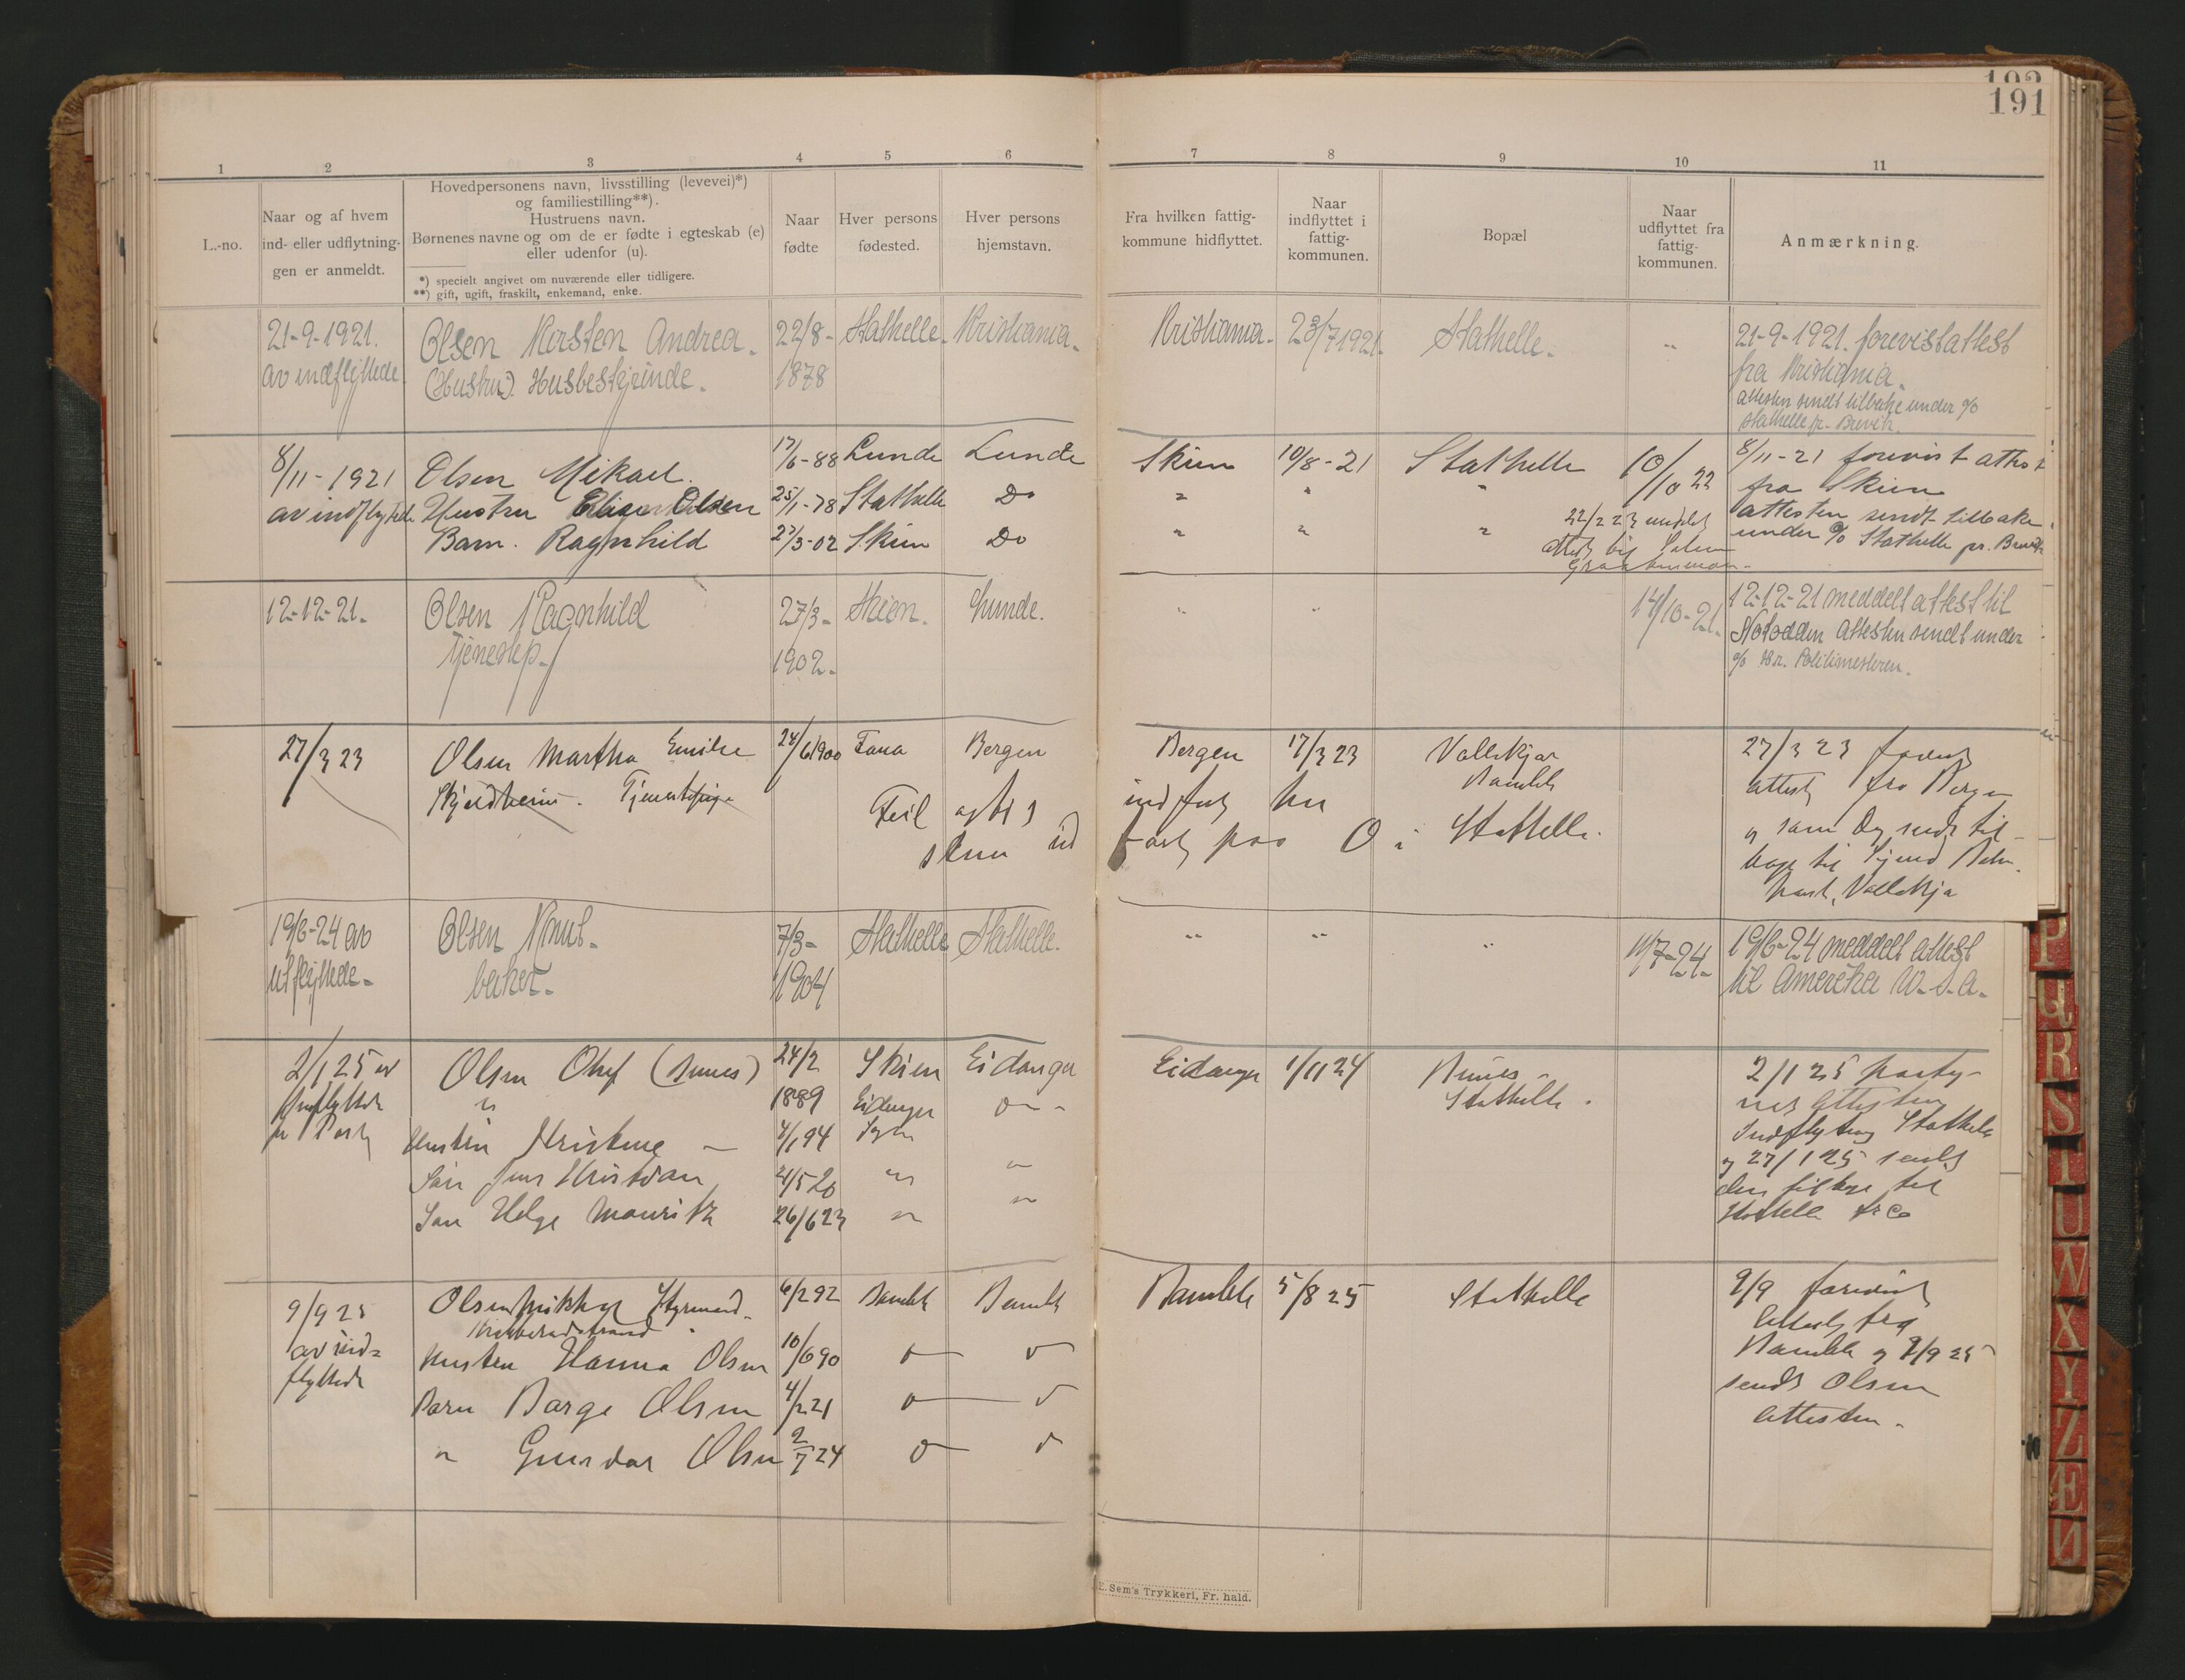 191
1 2 3 4 5 6 7 8 9 10 11
L.-no.
Naar og af hvem
ind- eller udflytnin-
gen er anmeldt.
Hovedpersonens navn, livsstilling (levevei)*)
og familiestilling**).
Hustruens navn.
Børnenes navne og om de er fødte i egteskab (e)
eller udenfor (u).
*) specielt angivet om nuværende eller tidligere.
**) gift, ugift, fraskilt, enkemand, enke.
Naar
fødte
Hver persons
fødested.
Hver persons
hjemstavn.
Fra hvilken fattig-
kommune hidflyttet.
Naar
indflyttet i
fattig-
kommunen.
Bopæl
Naar
udflyttet fra
fattig-
kommunen.
Anmærkning.
21-9-1921. Olsen Kirsten Andrea. 22/8- Stathelle. Kristiania. Kristiania. 23/7 1921. Stathelle. " 21-9-1921. forevist attest
av indflyttede (Hustru). Husbestyrinde. 1878 fra Kristiania.
attesten sendt tilbake under %
Stathelle pr. Brevik.
8/11-1921 Olsen Mikael. 17/6-88 Lunde Lunde Skien 10/8-21 Stathelle 10/10 22 8/11-21 forevist attest
av indflyttede Hustru Olsen 25/1-78 Stathelle Do " " " fra Skien
Barn. Ragnhild 27/3-02 Skien Do " " " 22/2 23 meddelt attesten sendt tilbake
under % Stathelle pr. Brevik
12-12-21. Olsen Ragnhild 27/3- Skien. Lunde. " " 14/10-21. 12-12-21 meddelt attest til
tjenestep. 1902. Notodden attesten sendt under
% Hr. Politimesteren.
27/3 23 Olsen Martha Emilie 24/6 1900 Fana Bergen Bergen 17/3 23 Valleskjær 27/3 23 forevist
Tjenestepige Bamble attest fra Bergen
Feil indført her Stathelle. og samme Dag sendt til-
bage til
Valleskjær
19/6-24 av Olsen 7/3- Stathelle Stathelle. " " " 11/7-24. 19/6-24 meddelt attest
utflyttede. baker. 1904 til Amerika U.S.A.
2/1 25 av Olsen Oluf 24/2 Skien Eidanger Eidanger 1/11 24 2/1 25
indflyttede " 1889 Eidanger Stathelle. attesten
pr Post Hustru Kristine 4/1 94 Indflytning Stathelle
Søn Jens Kristian 4/5 20 " " og 27/1 25 sendt
Søn Helge Mauritz 26/6 23 " " den tilbage til
9/9 25 Olsen Styrmand. 6/2 92 Bamble Bamble Bamble 5/8 25 Stathelle 9/9 forevist
av ind- attest fra
flyttede Hustru Hanna Olsen 10/6 90 Bamble og 9/9 25
Barn Borge Olsen 4/2 21 sendt Olsen
" Gunvor Olsen 2/7 24 attesten.
E. Sem's Trykkeri, Fr. hald.
P
Q
R
S
T
U
W
X
Y
Z
Æ